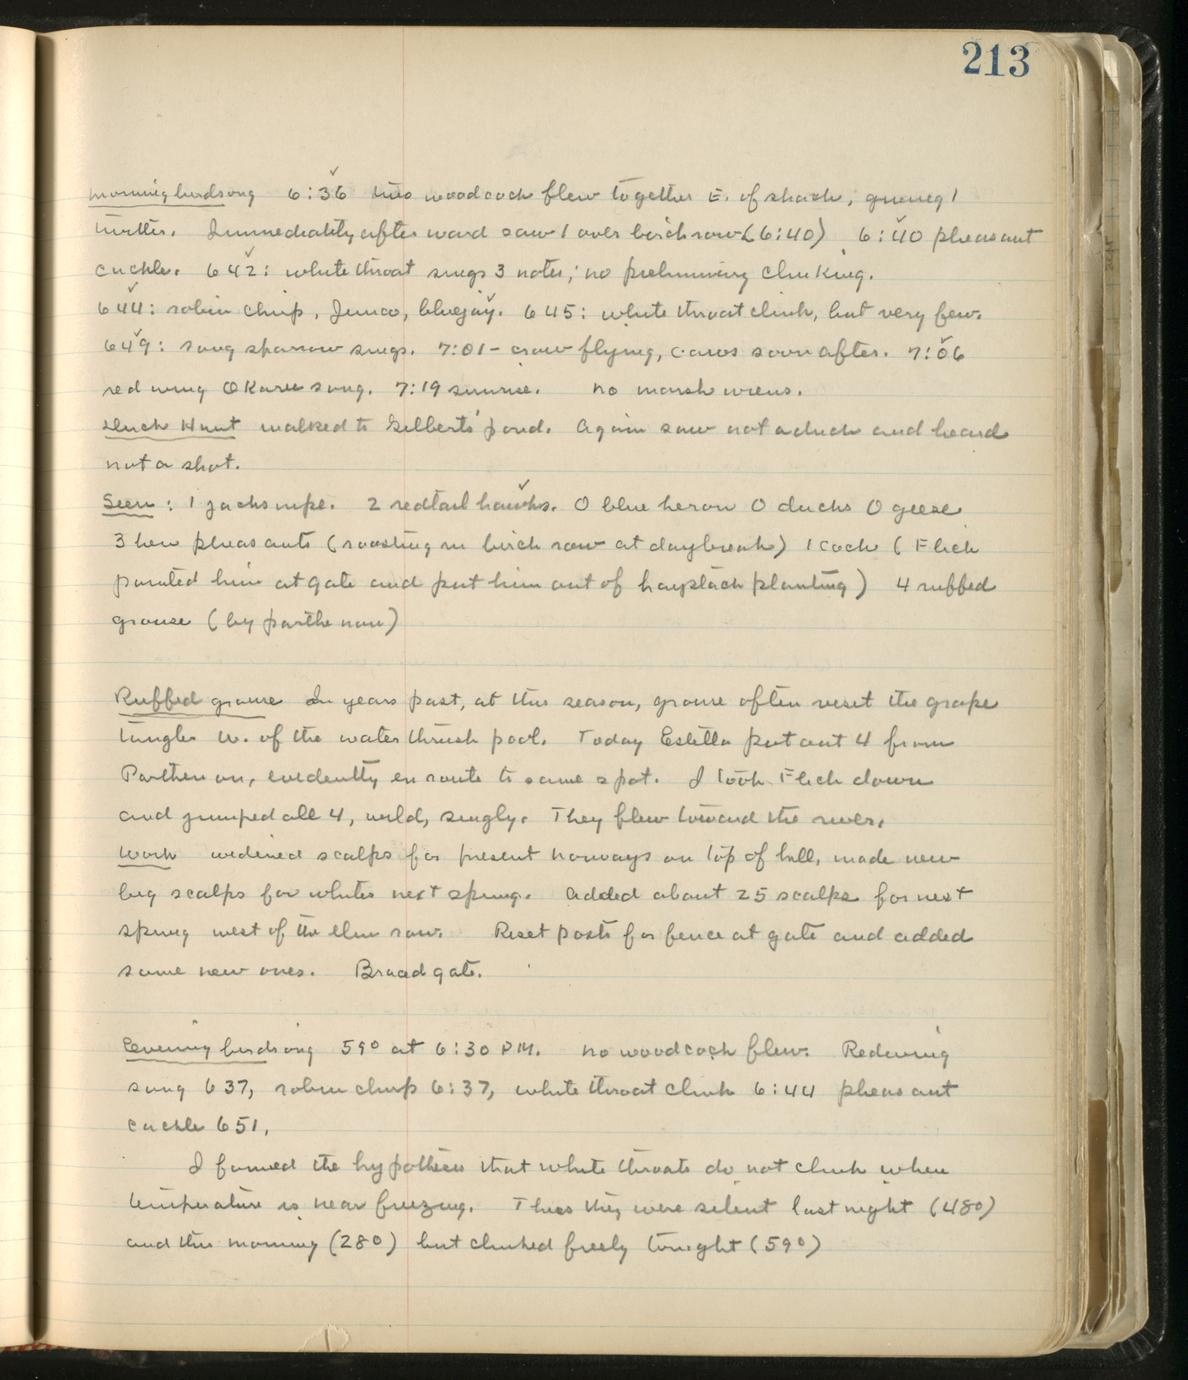 213
Morning birdsong 6:36 two woodcock flew together E. of shack, giving 1
twitter. Immediately afterward saw 1 over birch row (6:40) 6:40 pheasant
cackle. 6 42: whitethroat sings 3 notes; no preliminary clinking.
6 44: robin chirp, Junco, bluejay. 6 45: white throat clink, but very few.
6 49: song sparrow sings. 7:01- crow flying, caws soon after. 7:06
redwing OKaree song. 7:19 sunrise. No marsh wrens.
Duck Hunt walked to Gilberts' pond. Again saw not a duck and heard
not a shot.
Seen: 1 jacksnipe. 2 redtail hawks. 0 blue heron 0 ducks 0 geese
3 hen pheasants (roosting in birch row at daybreak) 1 cock (Flick
pointed him at gate and put him out of haystack planting) 4 ruffed
grouse (by parthenon)
Ruffed grouse In years past, at this season, grouse often visit the grape
tangle W. of the water thrush pool. Today Estella put out 4 from
Parthenon, evidently en route to same spot. I took Flick down
and jumped all 4, wild, singly. They flew toward the river.
Work widened scalps for present norways on top of hill, made new
big scalps for whites next spring. Added about 25 scalps for next
spring west of the elm row. Reset posts for fence at gate and added
some new ones. Braced gate.
Evening birdsong 59° at 6:30 PM. No woodcock flew. Redwing
song 6 37, robin chirp 6:37, white throat clink 6:44 pheasant
cackle 651.
I formed the hypothesis that white throats do not clink when
temperature is near freezing. Thus they were silent last night (48°)
and this morning (28°) but clinked freely tonight (59°)